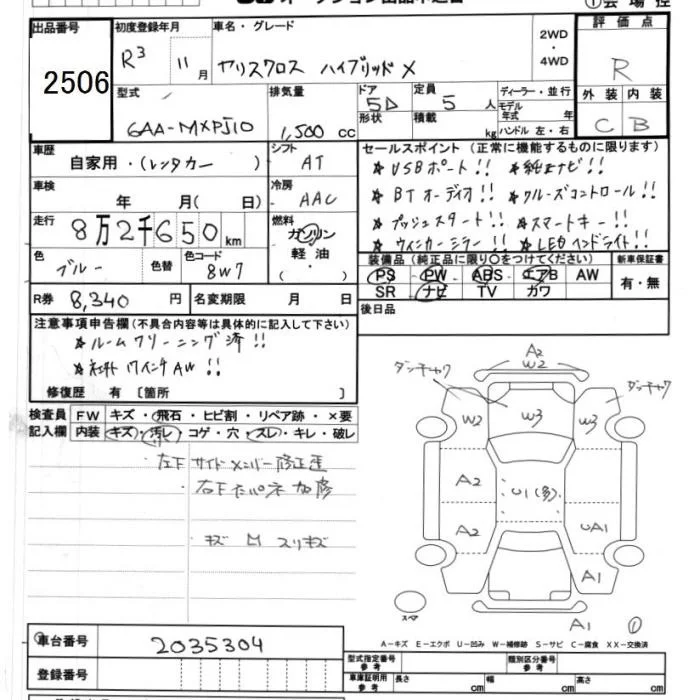 出品番号
2506
初度登録年月
R3 11月
車名・グレード
ヤリスクロス ハイブリッド X
2WD
・
4WD
評価点
R
外装 内装
C B
型式
6AA-MXPJ10
排気量
1,500 cc
ドア
5D
形状
定員
5 人
積載
kg
ディーラー・並行
モデル年式 年
ハンドル 左・右
車歴
自家用・(レンタカー )
シフト
AT
車検
年 月( 日)
冷房
AAC
走行
8万2千650km
燃料
ガソリン
軽油
( ・ )
色
ブルー
色替
色コード
8W7
R券 8,340 円
名変期限 月 日
セールスポイント (正常に機能するものに限ります)
★USBポート!! ★純正ナビ!!
★BTオーディオ!! ★クルーズコントロール!!
★プッシュスタート!! ★スマートキー!!
★ウィンカーミラー!! ★LEDヘッドライト!!
装備品 (純正品に限り○をつけてください)
新車保証書
PS PW ABS エアB AW
SR ナビ TV カワ
有・無
後日品
注意事項申告欄 (不具合内容等は具体的に記入して下さい)
★ルームクリーニング済!!
★社外 17インチAW!!
修復歴 有 〔箇所 〕
検査員
記入欄
FW キズ・飛石・ヒビ割・リペア跡・×要
内装 キズ・汚レ・コゲ・穴・スレ・キレ・破レ
・左下サイドメンバー修正歪
・右下
キズ M スリキズ
A2
W2
ダンチャク
ダンチャク
W2
W3
W3
A2
U1(多)
A2
UA1
A1
スペア
A1
①
A-キズ E-エクボ U-凹み W-補修跡 S-サビ C-腐食 XX-交換済
車台番号
2035304
登録番号
型式指定番号
参考
類別区分番号
参考
車庫証明用
参考
長さ cm
幅 cm
高さ cm